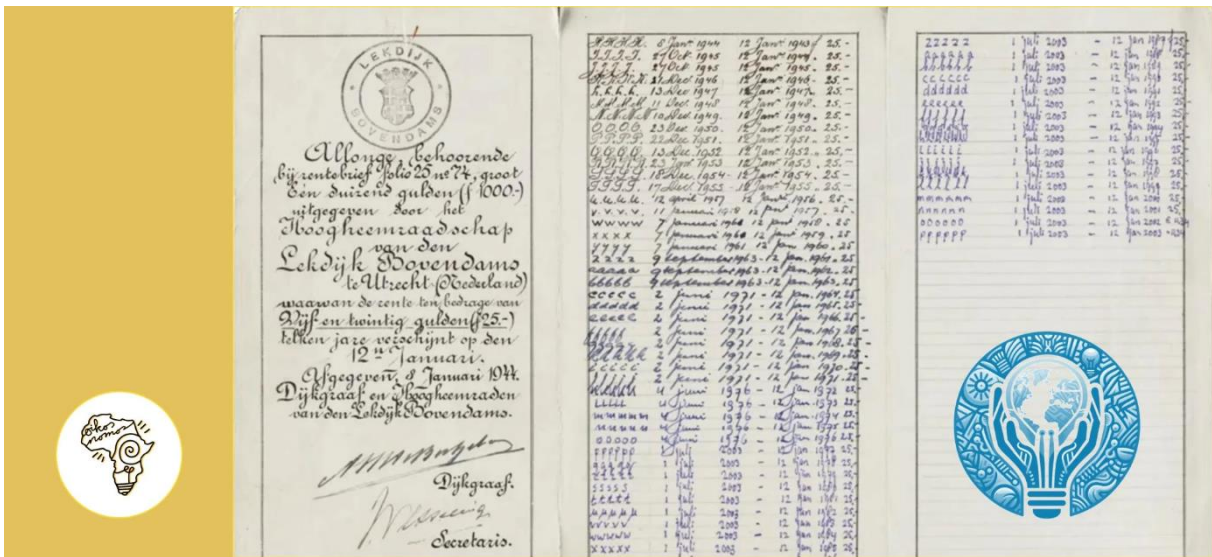 LEKDIJK
BOVENDAMS
Allonge, behoorende
bij rentebrief folio 25 nº 74, groot
Één duizend gulden (ƒ 1000.-)
uitgegeven door het
Hoogheemraadschap
van den
Lekdijk Bovendams
te Utrecht (Nederland)
waarvan de rente ten bedrage van
Vijf en twintig gulden (ƒ25.-)
telken jare verschijnt op den
12ⁿ Januari.
Afgegeven, 8 Januari 1944.
Dijkgraaf en Hoogheemraden
van den Lekdijk Bovendams.
Dijkgraaf.
Secretaris.
nomos
H.H.H.H. 6 Janr 1944 12 Janr 1943 25.-
27 Oct 1945 12 Janr 1944. 25.-
27 Oct 1945 12 Janr 1945. 25.-
Dec 1946 12 Janr 1946. 25.-
13 Dec 1947 12 Janr 1947. 25.-
M.M.M.M. 11 Dec 1948 12 Janr 1948. 25.-
N.N.N.N. 10 Dec 1949. 12 Janr 1949. 25.-
O.O.O.O. 23 Dec 1950. 12 Janr 1950. 25.-
P.P.P.P. 22 Dec 1951. 12 Janr 1951. 25.-
13 Dec 1952 12 Janr 1952. 25.-
R.R.R.R. 23 Janr 1953 12 Janr 1953. 25.-
S.S.S.S. 18 Dec. 1954 12 Janr 1954. 25.-
T.T.T.T. 17 Dec. 1955 12 Janr 1955. 25.-
u.u.u.u. 12 april 1957 12 Janr 1956. 25.-
v.v.v.v. 11 januari 1958 12 Janr 1957. 25.-
wwww 7 januari 1960 12 Janr 1958. 25
xxxx 7 januari 1960 12 Janr 1959. 25
yyyy 7 januari 1961 12 Jan 1960. 25
zzzz 9 september 1963 - 12 Jan. 1961. 25
aaaaa 9 september 1963 - 12 Jan. 1962. 25
bbbbb 9 september 1963 - 12 Jan. 1963. 25
ccccc 2 juni 1971 - 12 Jan. 1964. 25
ddddd 2 juni 1971 - 12 Jan. 1965. 25
eeeee 2 juni 1971 - 12 Jan. 1966. 25
fffff 2 juni 1971 - 12 Jan. 1967 25
2 juni 1971 - 12 Jan. 1968. 25
2 juni 1971 - 12 Jan. 1969. 25
2 juni 1971 - 12 Jan. 1970. 25
2 juni 1971 - 12 Jan. 1971. 25
4 juni 1976 - 12 Jan 1972 25
LLLLL 4 juni 1976 - 12 Jan 1973 25
mmmmm 4 juni 1976 - 12 Jan 1974 25
nnnnn 4 juni 1976 - 12 Jan 1975 25
ooooo 4 juni 1976 - 12 Jan 1976 25
ppppp 1 juli 2003 - 12 Jan 25
1 juli 2003 - 12 Jan 25
1 juli 2003 - 12 Jan 25
sssss 1 juli 2003 - 12 Jan 25
ttttt 1 juli 2003 - 12 Jan 1981 25
uuuuu 1 juli 2003 - 12 Jan 1982 25
vvvvv 1 juli 2003 - 12 Jan 1983 25
wwwww 1 juli 2003 - 12 Jan 1984 25
xxxxx 1 juli 2003 - 12 Jan 1985 25
zzzzz 1 juli 2003 - 12 Jan 1987 25
1 juli 2003 - 12 Jan 1988 25
1 juli 2003 - 12 Jan 1989 25
cccccc 1 juli 2003 - 12 Jan 1990 25
dddddd 1 juli 2003 - 12 Jan 1991 25
eeeeee 1 juli 2003 - 12 Jan 1992 25
ffffff 1 juli 2003 - 12 Jan 1993 25
1 juli 2003 - 12 Jan 1994 25
1 juli 2003 - 12 Jan 25
1 juli 2003 - 12 Jan 1996 25
1 juli 2003 - 12 Jan 25
1 juli 2003 - 12 Jan 25
1 juli 2003 - 12 Jan 1999 25
mmmmmm 1 juli 2003 - 12 Jan 2000 25
nnnnnn 1 juli 2003 - 12 Jan 2001 25,
oooooo 1 juli 2003 - 12 Jan 2002
pppppp 1 juli 2003 - 12 Jan 2003